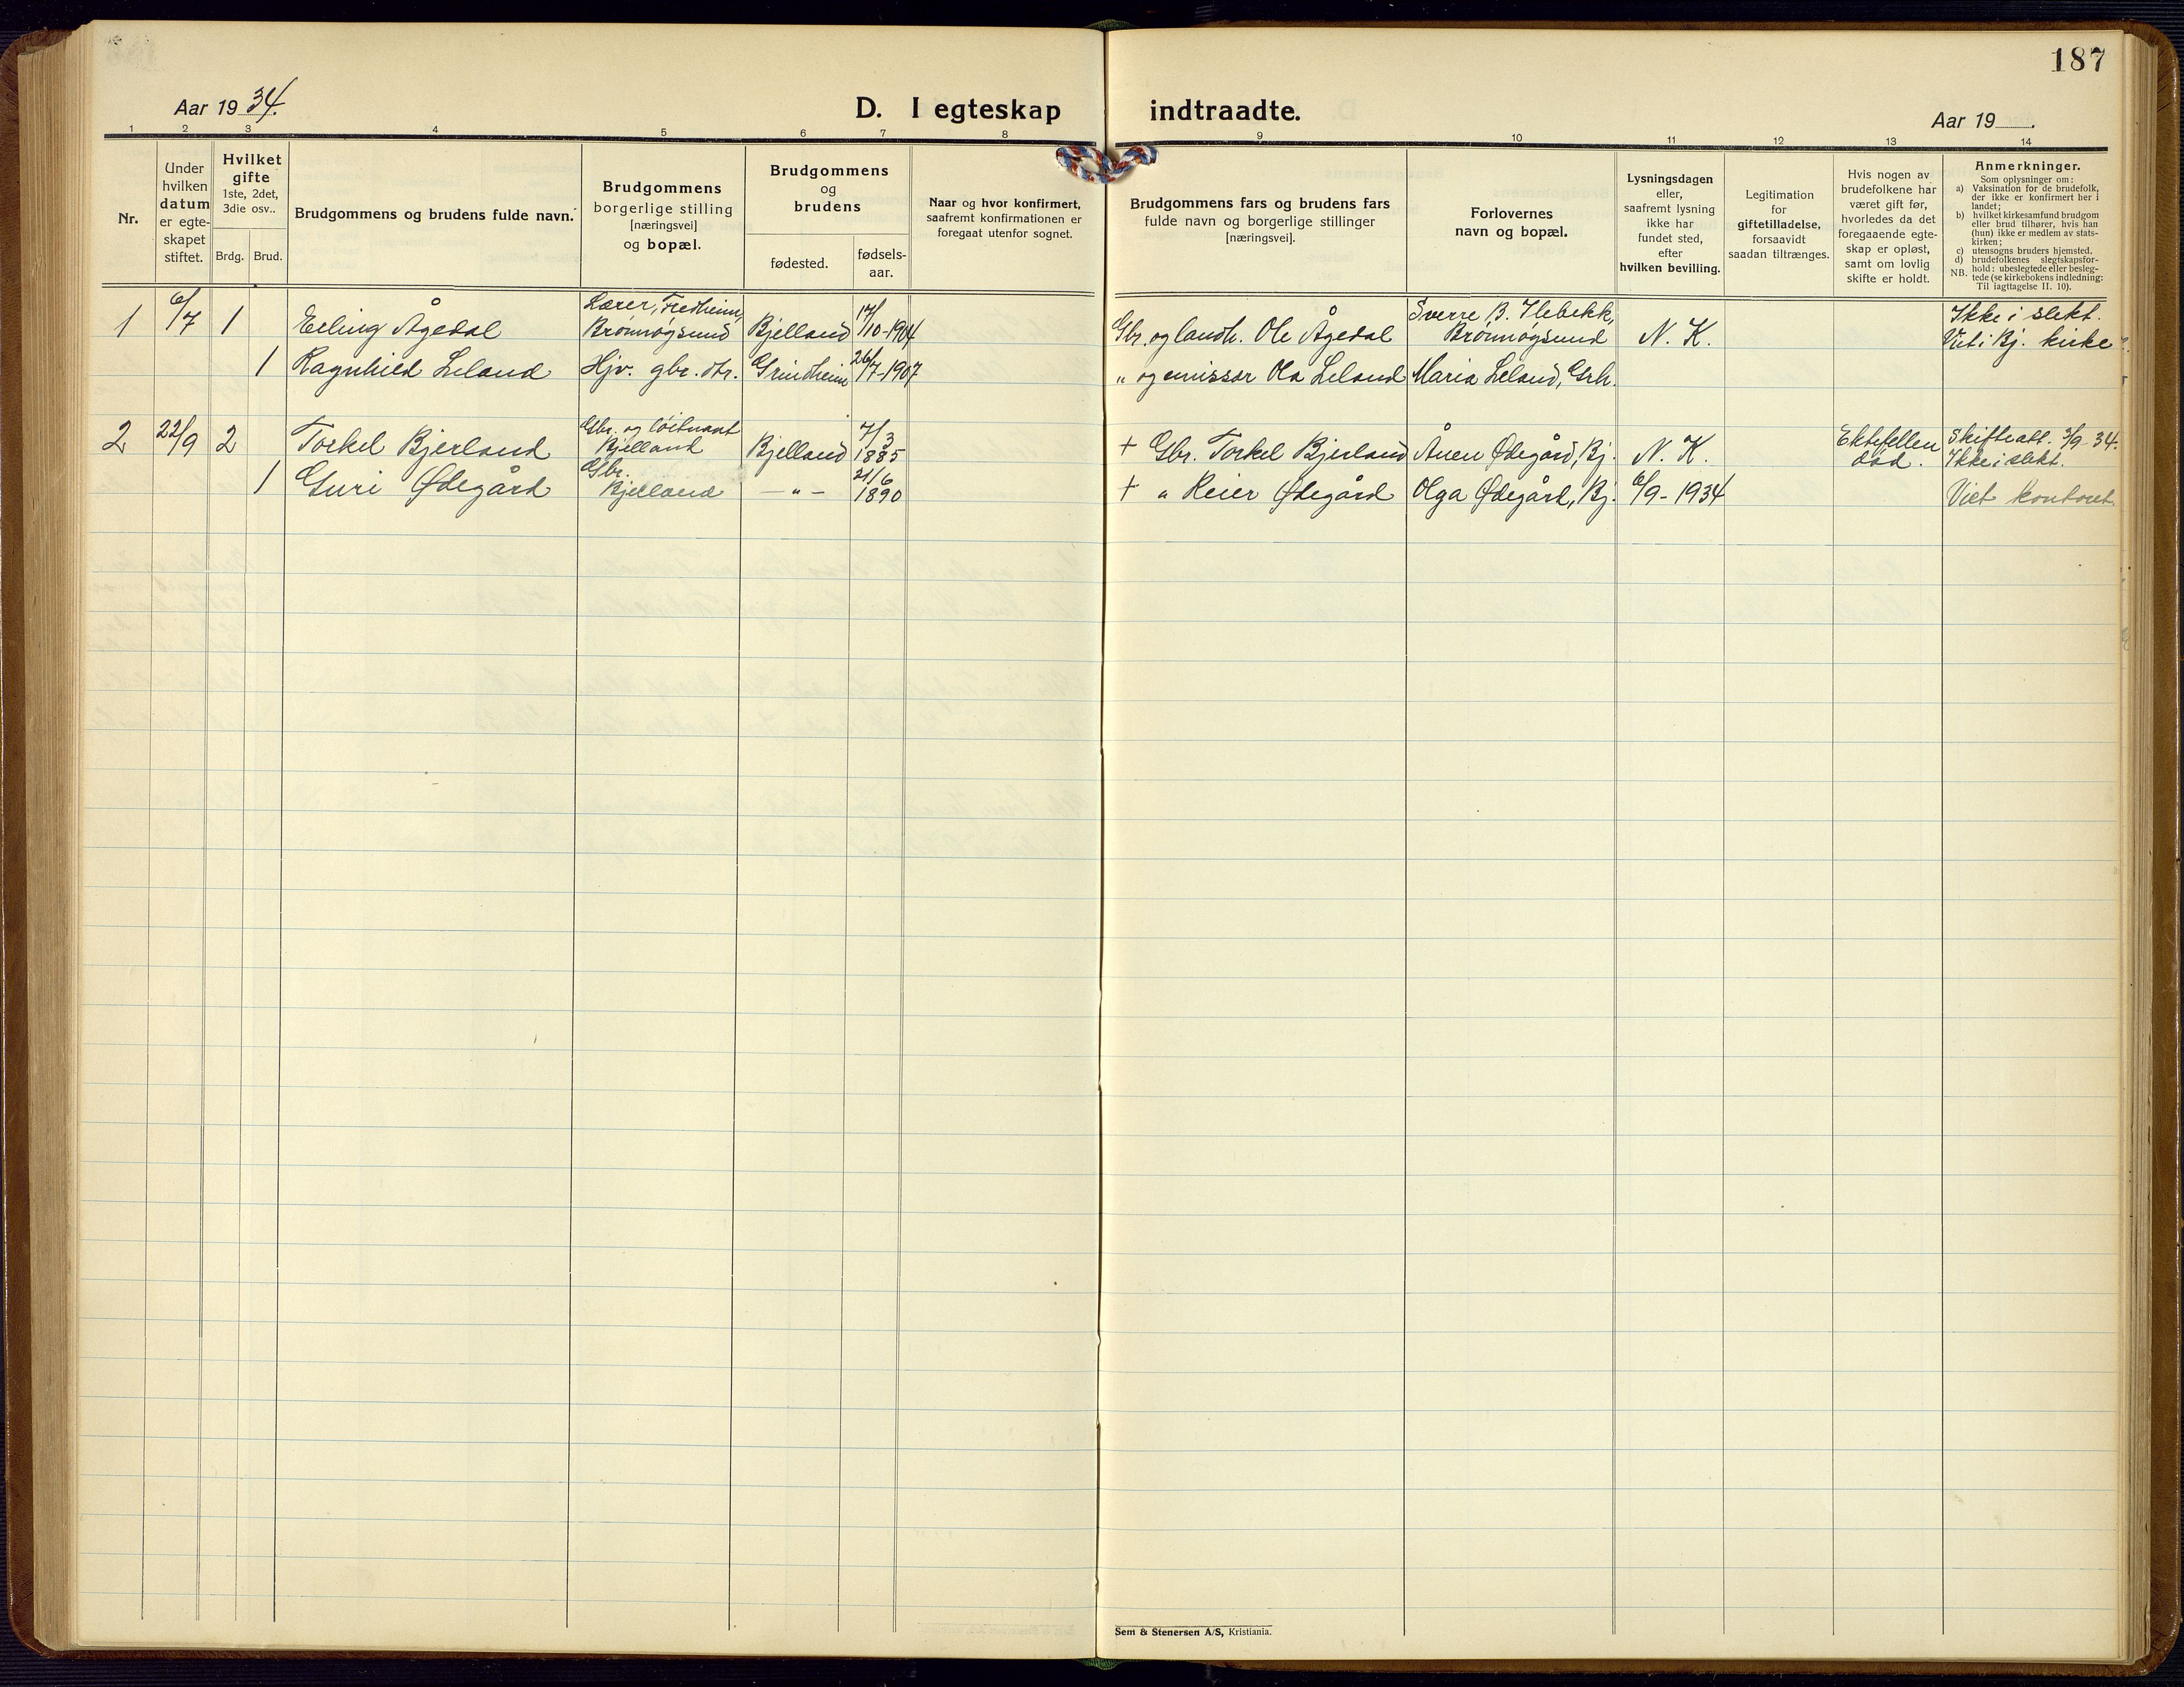 187
Aar 1934.
D. I egteskap indtraadte.
Aar 19 .
1 2 3 4 5 6 7 8 9 10 11 12 13 14
Nr.
Under hvilken datum er egte-skapet stiftet.
Hvilket gifte
1ste, 2det, 3die osv..
Brdg. Brud.
Brudgommens og brudens fulde navn.
Brudgommens
borgerlige stilling
[næringsvei]
og bopæl.
Brudgommens
og
brudens
fødested.
fødsels-
aar.
Naar og hvor konfirmert,
saafremt konfirmationen er
foregaat utenfor sognet.
Brudgommens fars og brudens fars
fulde navn og borgerlige stillinger
[næringsvei].
Forlovernes
navn og bopæl.
Lysningsdagen
eller,
saafremt lysning
ikke har
fundet sted,
efter
hvilken bevilling.
Legitimation
for
giftetilladelse,
forsaavidt
saadan tiltrænges.
Hvis nogen av
brudefolkene har
været gift før,
hvorledes da det
foregaaende egte-
skap er opløst,
samt om lovlig
skifte er holdt.
Anmerkninger.
Som oplysninger om:
a) Vaksination for de brudefolk,
der ikke er konfirmert her i
landet;
b) hvilket kirkesamfund brudgom
eller brud tilhører, hvis han
(hun) ikke er medlem av stats-
kirken;
c) utensogns bruders hjemsted.
d) brudefolkenes slegtskapsfor-
hold: ubeslegtede eller besleg-
NB. tede (se kirkebokens indledning:
Til iagttagelse II. 10).
1 6/7 1 Erling Ågedal Lærer, Fredheim, Brønnøysund Bjelland 17/10-1904 Gbr. og landh. Ole Ågedal Sverre B. Ilebekk, Brønnøysund N. K. Ikke i slekt. Viet i Bj. kirke
1 Ragnhild Leland Hjv. gbr. dtr. Grindheim 26/7-1907 " og emissær Ola Leland Maria Leland, Grh.
2 22/9 2 Torkel Bjerland Gbr. og løitnant Bjelland Bjelland 7/3 1885 + Gbr. Torkel Bjerland Ånen Ødegård, Bj. N. K. Ektefellen død. Skifteatt. 3/9. 34. Ikke i slekt.
1 Guri Ødegård Gbr. Bjelland — " — 21/6 1890 + " Reier Ødegård Olga Ødegård, Bj. 6/9-1934 Viet kontoret.
Sem & Stenersen A/S, Kristiania.